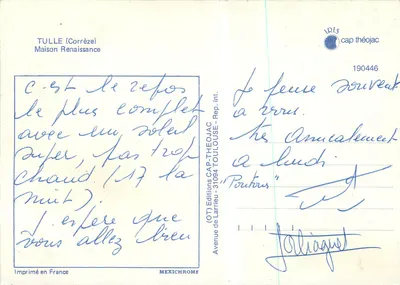 TULLE (Corrèze)
Maison Renaissance
c'est le repos
le plus complet
avec un soleil
super, pas trop
chaud (17 la
nuit).
J'espère que
vous allez bien
Imprimé en France
MEXICHROME
(OT) Editions CAP-THEOJAC
Avenue de Larrieu - 31094 TOULOUSE - Rep. int.
IRIS
cap théojac
190446
Je pense souvent
à vous.
Très Amicalement
à lundi